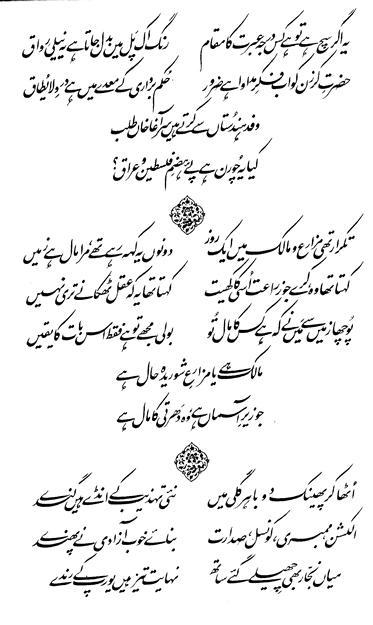 یہ اگر سچ ہے تو ہے کس درجہ عبرت کا مقام رنگ اک پل میں بدل جاتا ہے یہ نیلی رواق
حضرتِ کرزن کو اب فکرِ مداوا ہے ضرور حکم برداری کے معدے میں ہے دردِ لایطاق
وفد ہندستاں سے کرتے ہیں سر آغا خاں طلب
کیا یہ چورن ہے پئے ہضمِ فلسطین و عراق؟
تکرار تھی مزارع و مالک میں ایک روز دونوں یہ کہہ رہے تھے مرا مال ہے زمیں
کہتا تھا وہ کرے جو زراعت اسی کا کھیت کہتا تھا یہ کہ عقل ٹھکانے تری نہیں
پوچھا زمیں سے میں نے کہ ہے کس کا مال تو بولی مجھے تو ہے فقط اس بات کا یقیں
مالک ہے یا مزارعِ شوریدہ حال ہے
جو زیرِ آسماں ہے وہ دھرتی کا مال ہے
اٹھا کر پھینک دو باہر گلی میں نئی تہذیب کے انڈے ہیں گندے
الکشن، ممبری، کونسل، صدارت بنائے خوب آزادی نے پھندے
میاں نجار بھی چھیلے گئے ساتھ نہایت تیز ہیں یورپ کے رندے